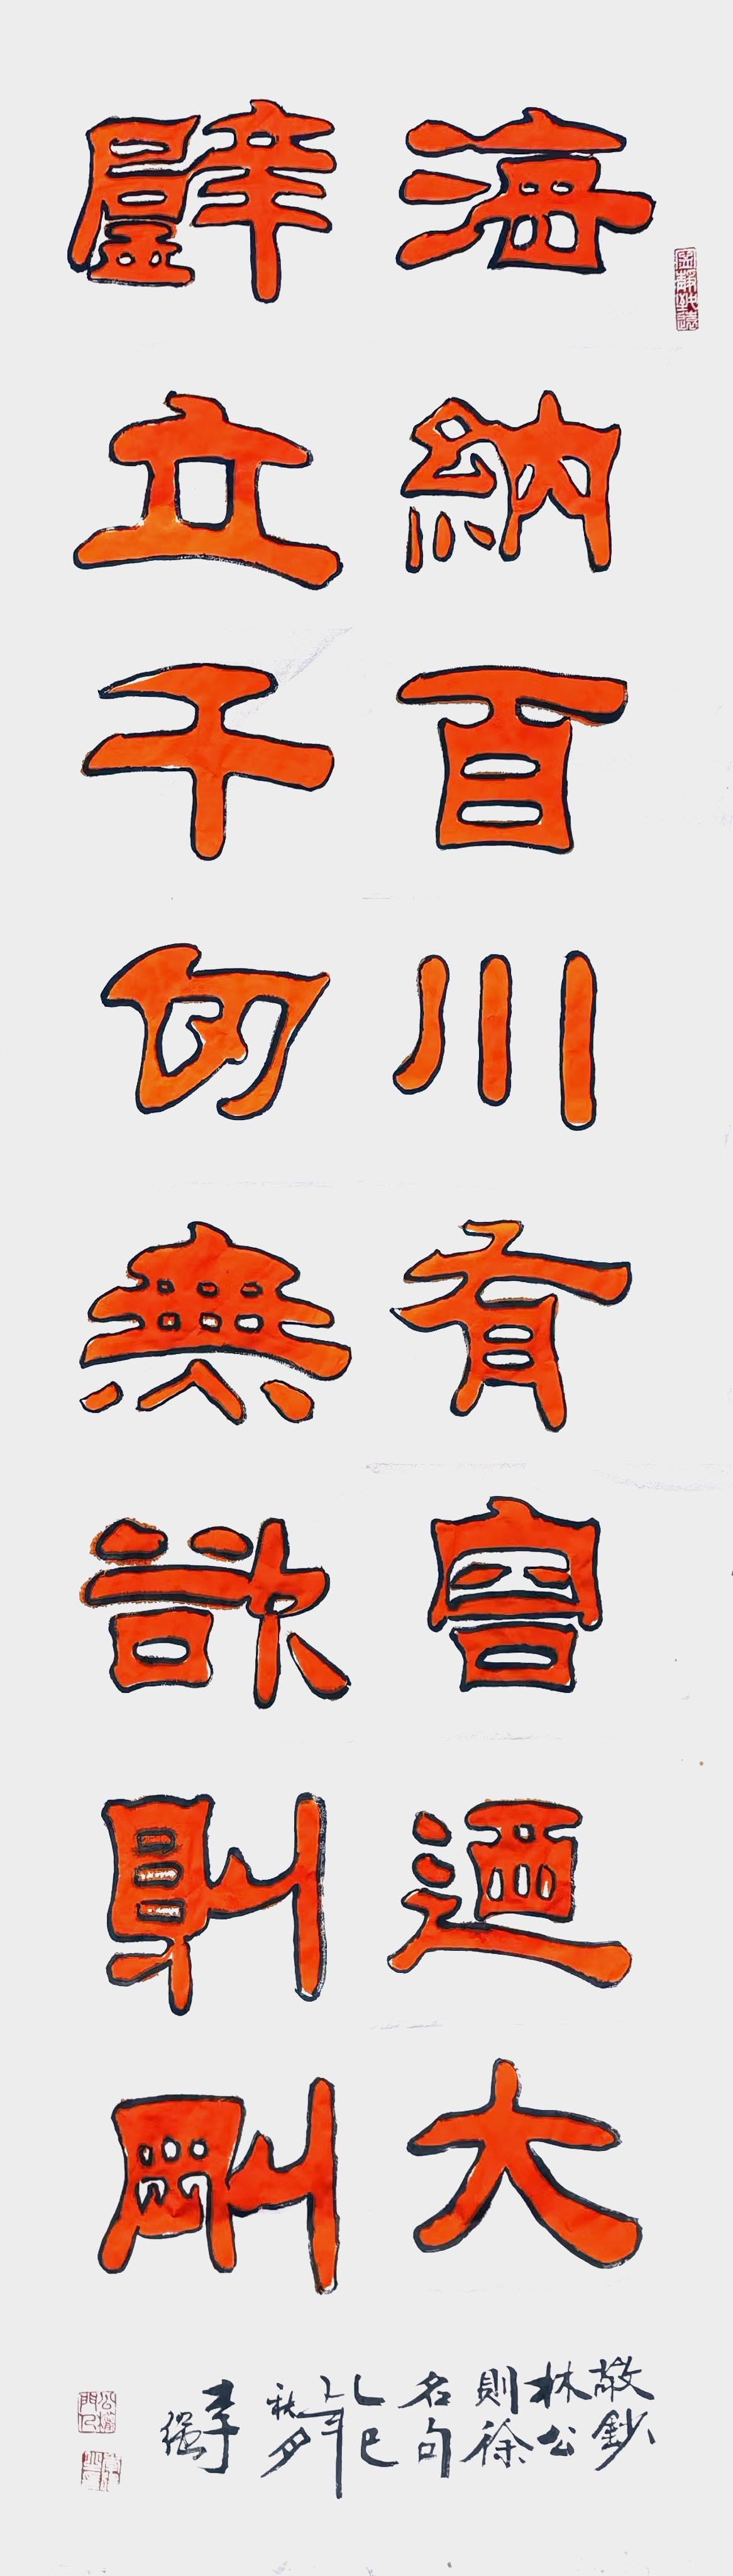 海納百川有容迺大
壁立千仞無欲則剛
敬鈔
林公
則徐
名句
乙巳
年
秋月
李
强